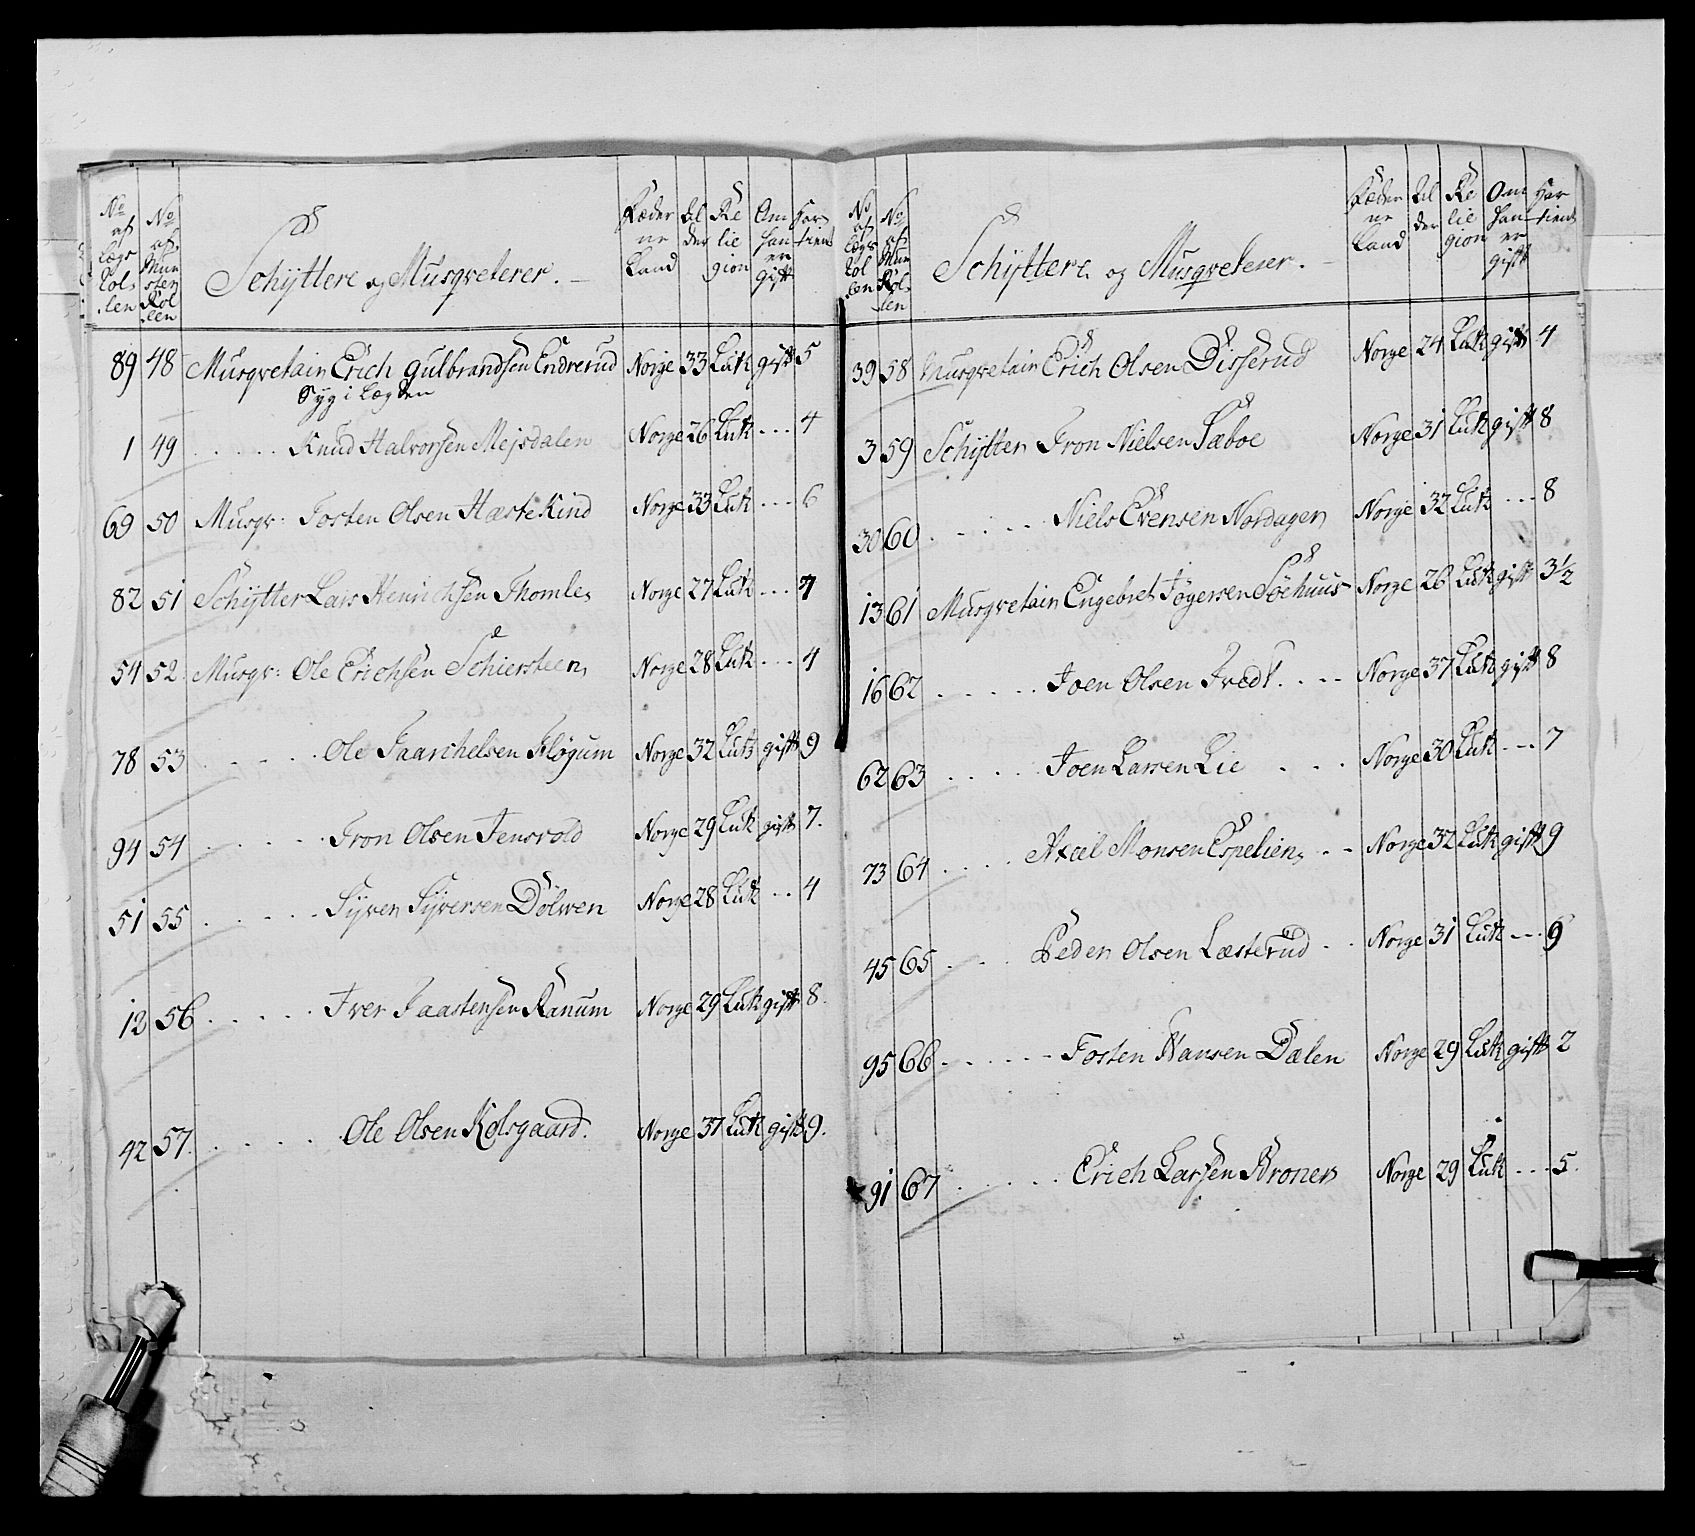 No af Lægs Rollen | No af Mynsterrollen | Schyttere og Musqveterer. | Fæderne Land | Alder | Religion | Om han er Gift | Har tient
89 48 Musqvetair Erich Gulbrandsen Endrerud Norge 33 Luth gift 5
Syg i Lægden
1 49 ..... Knud Halvorsen Mejsdalen Norge 26 Luth ... 4
69 50 Musqv: Tosten Olsen Hæstekind Norge 33 Luth ... 6
82 51 Schytter Lars Henrichsen Thomle Norge 27 Luth ... 4
54 52 Musqv: Ole Erichsen Schiersteen Norge 28 Luth ... 4
78 53 ..... Ole Taarchelsen Fløgum Norge 32 Luth gift 9
94 54 ..... Tron Olsen Jensvold Norge 29 Luth gift 7.
51 55 ..... Syver Syversen Dølven Norge 28 Luth ... 4
12 56 ..... Iver Taastensen Ranum Norge 29 Luth gift 8.
42 57. ..... Ole Olsen Kolsgaard. Norge 37 Luth gift 9.
No af Lægs Rollen | No af Mun Rollen | Schyttere og Musqveterer. | Fæderne Land | Alder | Religion | Om han er gift | Har tient
39 58 Musqvetair Erich Olsen Disserud Norge 24 Luth gift 4
3 59 Schytter Tron Nielsen Sæboe Norge 31 Luth gift 8
30 60 ..... Niels Evensen Nordagen Norge 32 Luth ... 8
13 61 Musqvetair Engebret Jøgersen Søehuus Norge 26 Luth gift 3½
16 62 ..... Joen Olsen .... Norge 37 Luth gift 8
62 63 ..... Joen Larsen Lie ... Norge 30 Luth ... 7
73 64 .... Axcel Monsen Espelien .. Norge 32 Luth gift 9
45 65 .... Peder Olsen Læsterud .. Norge 31 Luth ... 9
95 66 ..... Tosten Hansen Dælen Norge 29 Luth gift 2
91 67 ..... Erich Larsen Broner Norge 29 Luth ... 5.